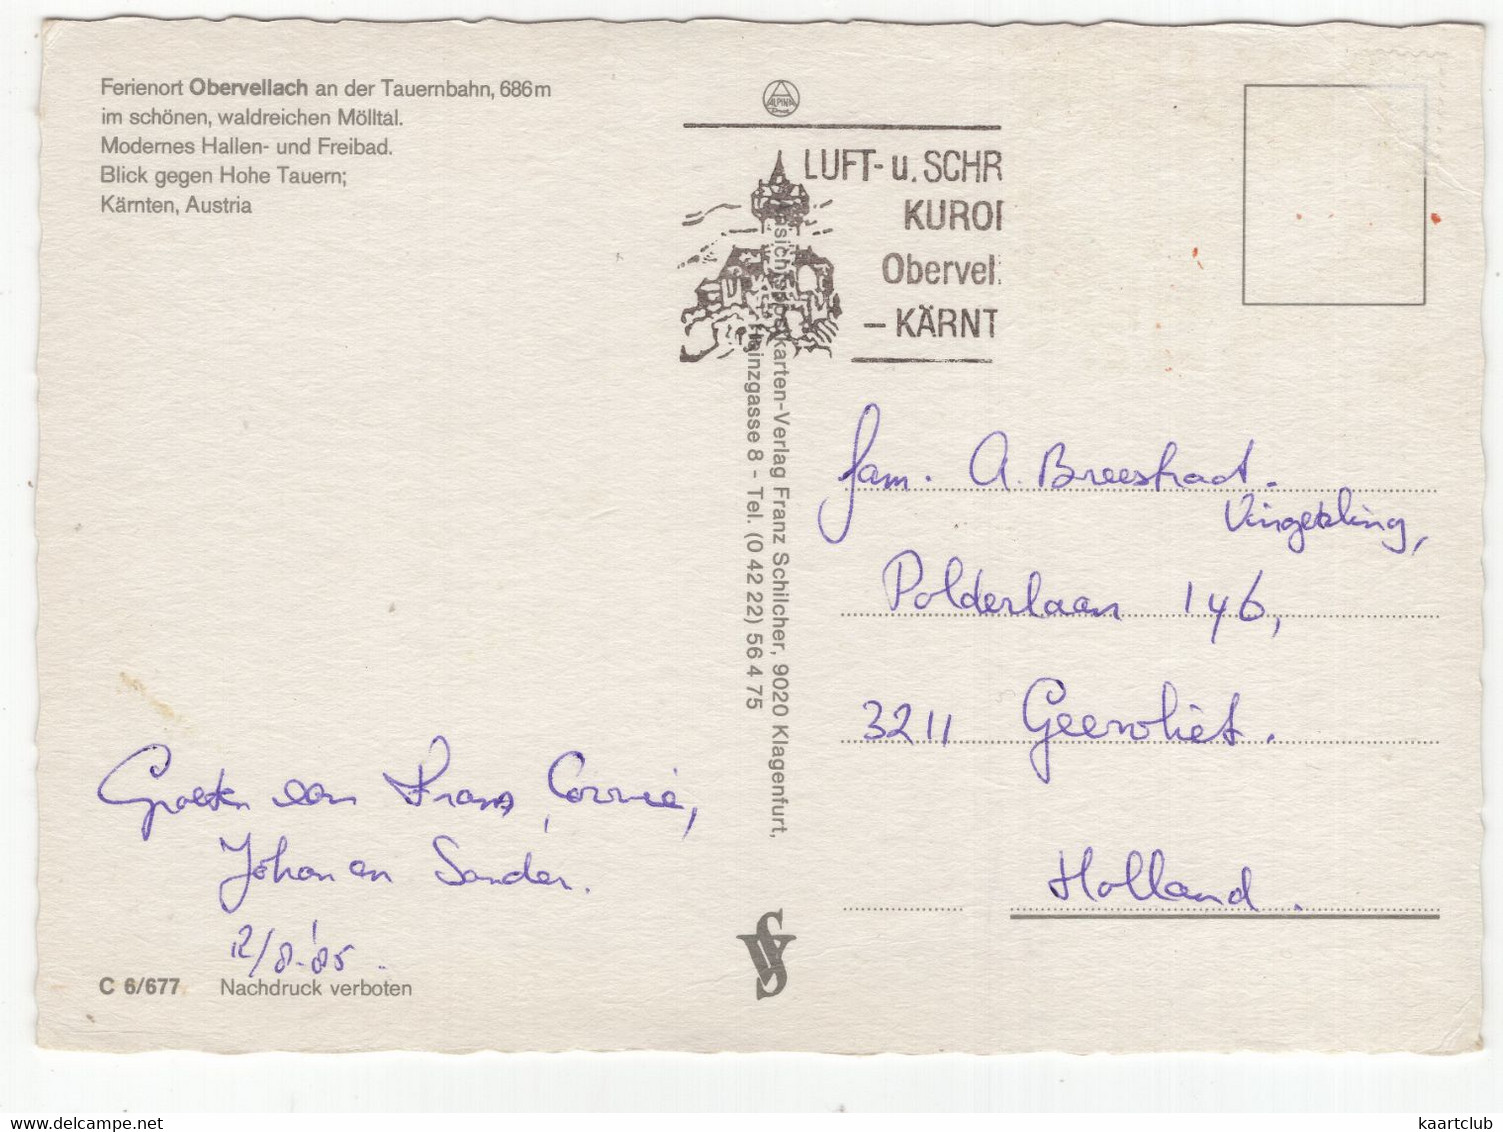 Ferienort Obervellach an der Tauernbahn, 686m
im schönen, waldreichen Mölltal.
Modernes Hallen- und Freibad.
Blick gegen Hohe Tauern;
Kärnten, Austria
ALPINA
LUFT- u. SCHR
KUROI
Obervel
– KÄRNT
karten-Verlag Franz Schilcher, 9020 Klagenfurt,
Hainzgasse 8 - Tel. (0 42 22) 56 4 75
fam. A. Breestraat.
Polderlaan 146,
3211 Geervliet.
Holland.
Groeten van Frans, Corrie,
Johan en Sander.
12/8-'85.
C 6/677 Nachdruck verboten
kaartclub